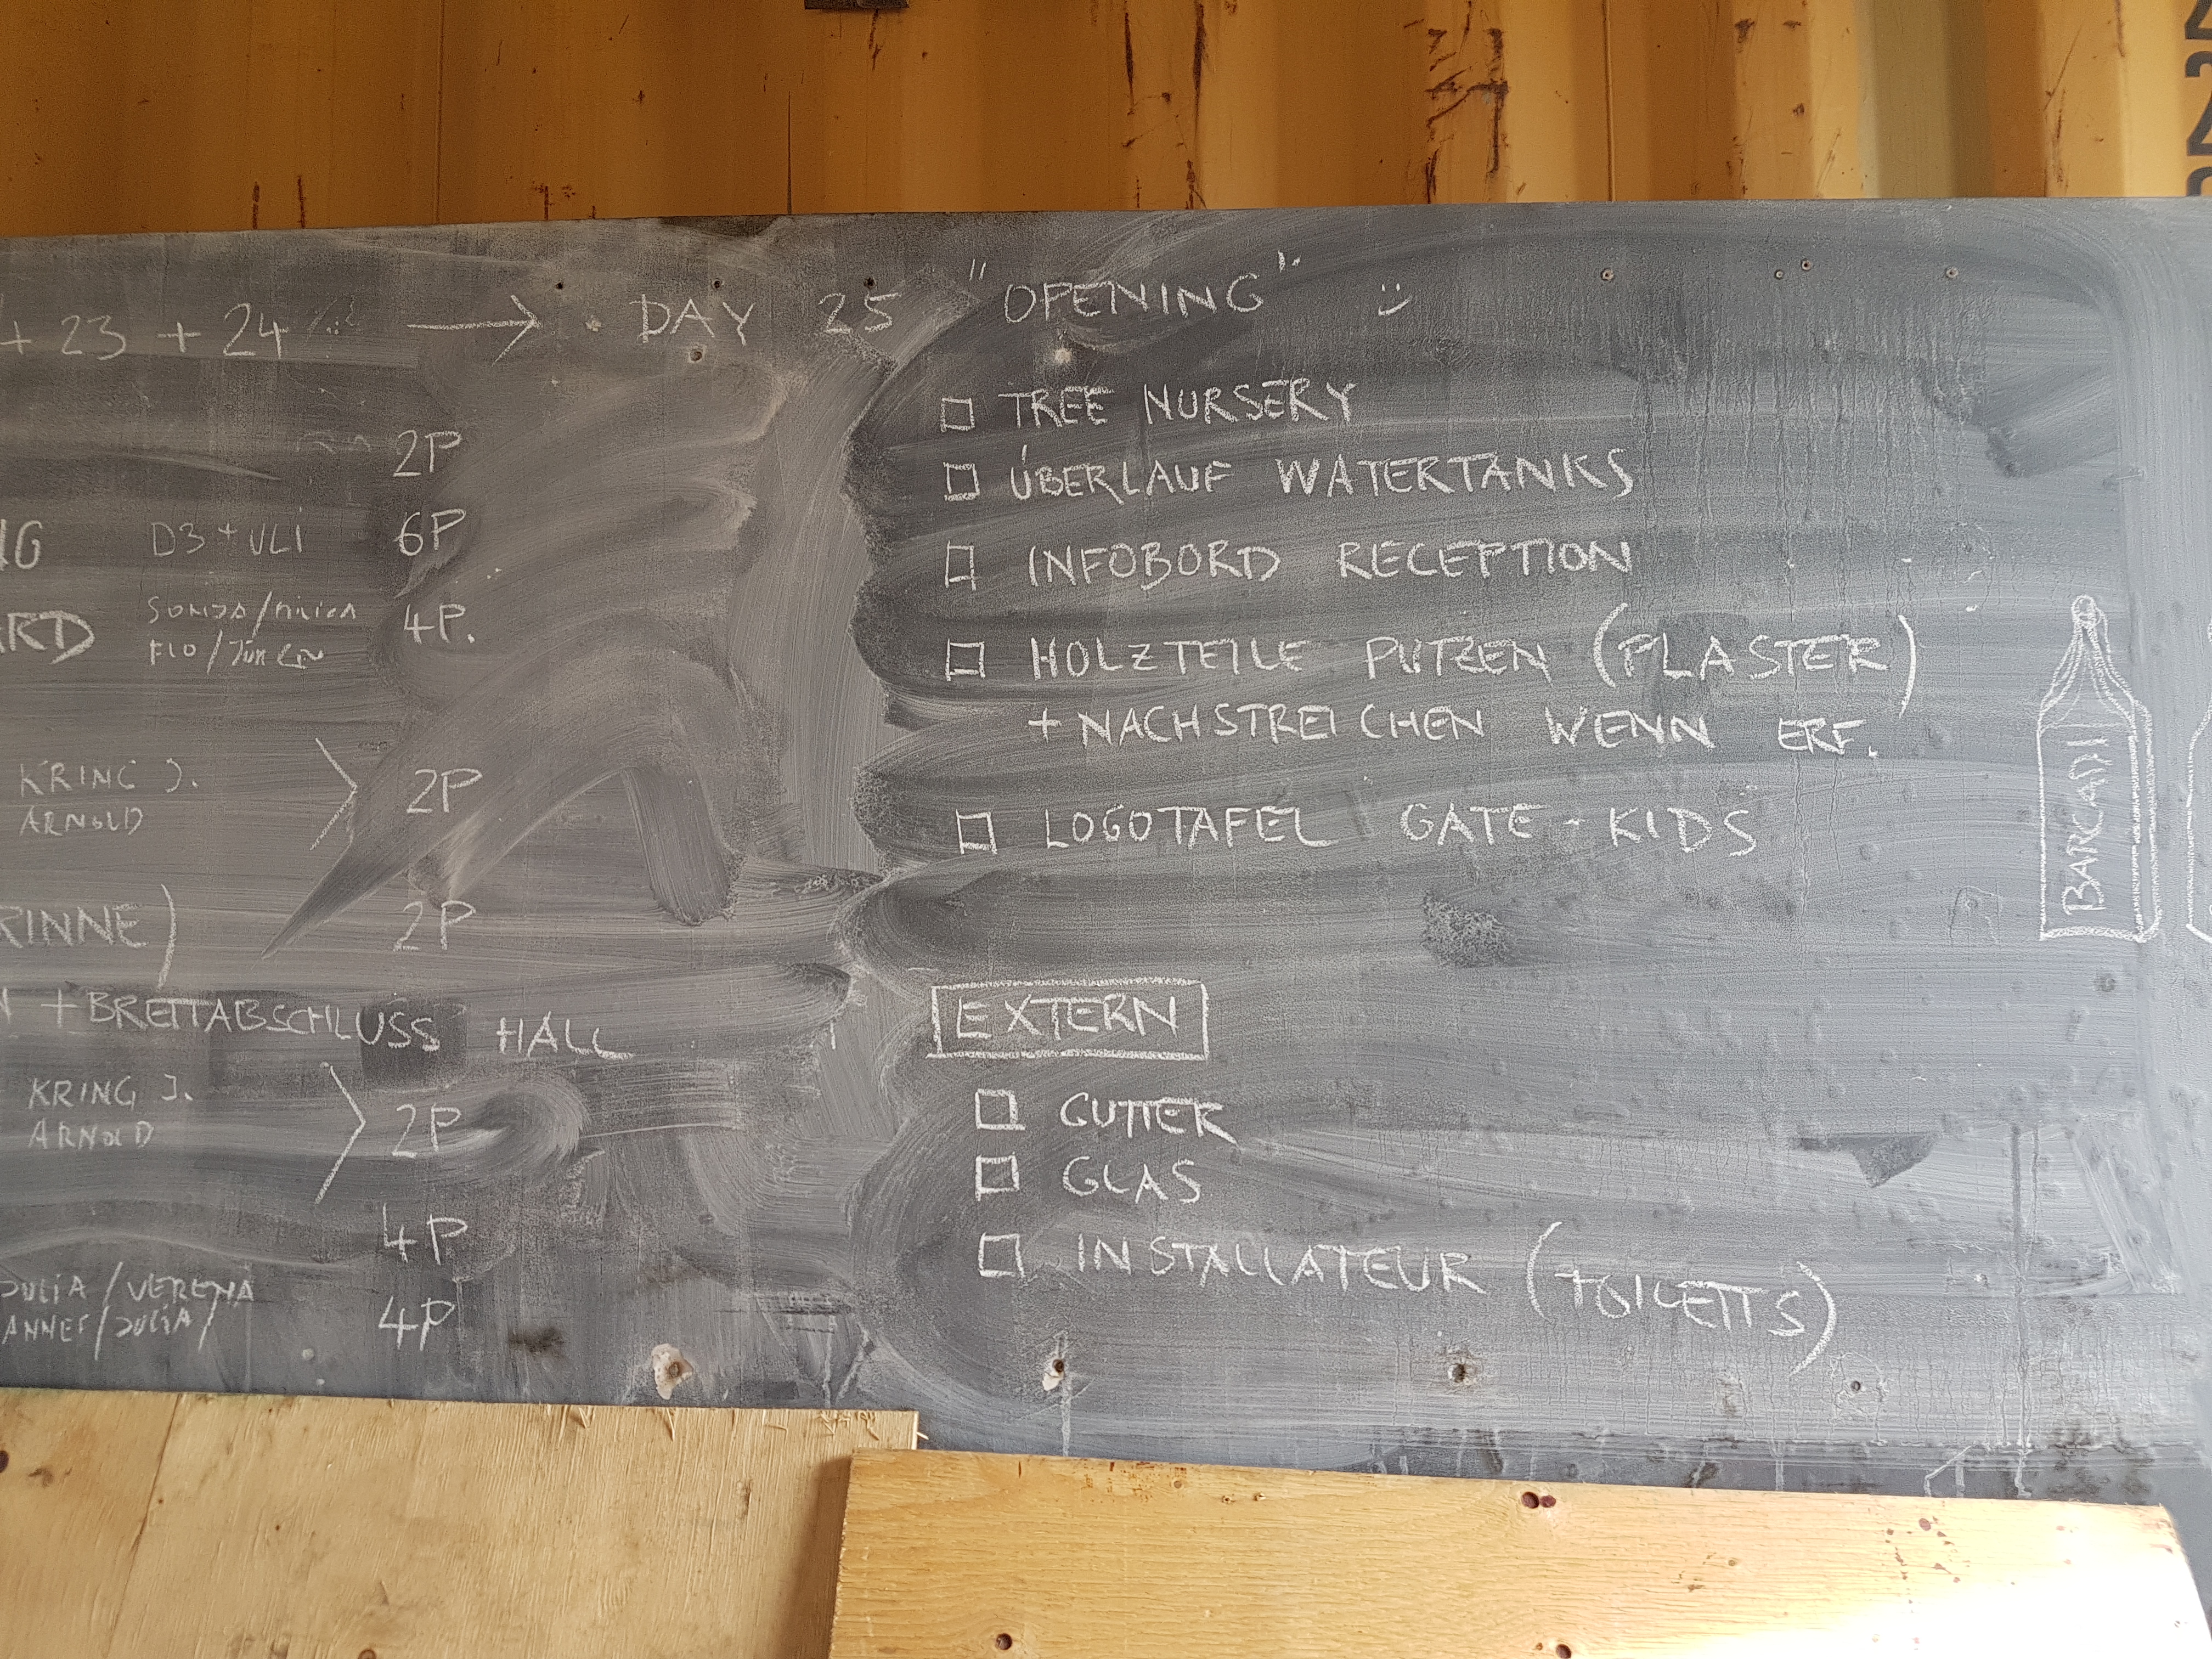 + 23 + 24 → DAY 25 "OPENING"
2P
D3 + ULI 6P
4P.
FLO /
KRING J.
ARNOLD
2P
RINNE) 2P
+ BRETTABSCHLUSS HALL
KRING J.
ARNOLD
2P
4P
JULIA / VERENA
ANNEF / JULIA /
4P
TREE NURSERY
ÜBERLAUF WATERTANKS
INFOBORD RECEPTION
HOLZTEILE PUTZEN (PLASTER)
+ NACHSTREICHEN WENN ERF.
LOGOTAFEL GATE - KIDS
BARCADI
EXTERN
GUTTER
GLAS
INSTALLATEUR (TOILETTS)